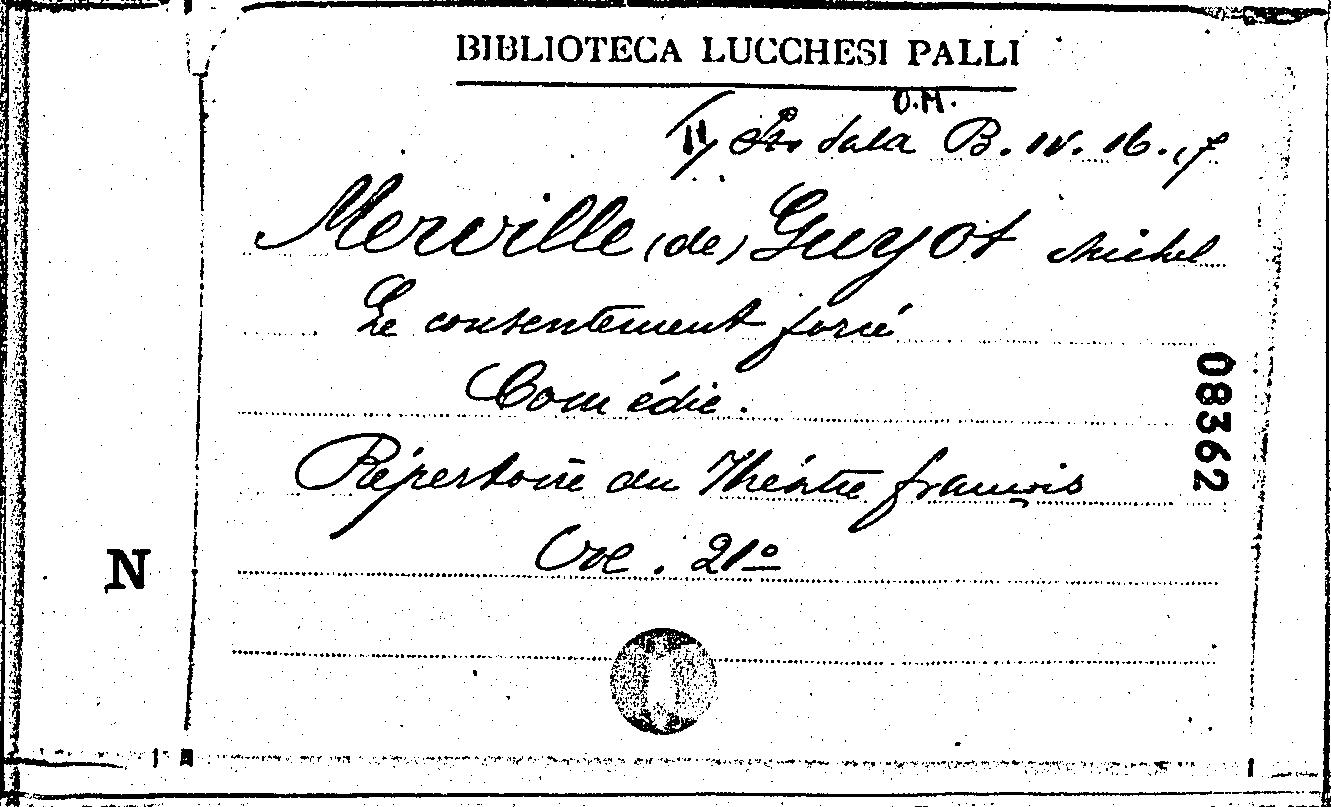 BIBLIOTECA LUCCHESI PALLI
O.M.
Sala B. IV. 16. 17
Merville (de) Guyot Michel
Le consentement forcé
Comédie.
Répertoire du Théâtre françois
Vol. 21º
08362
N